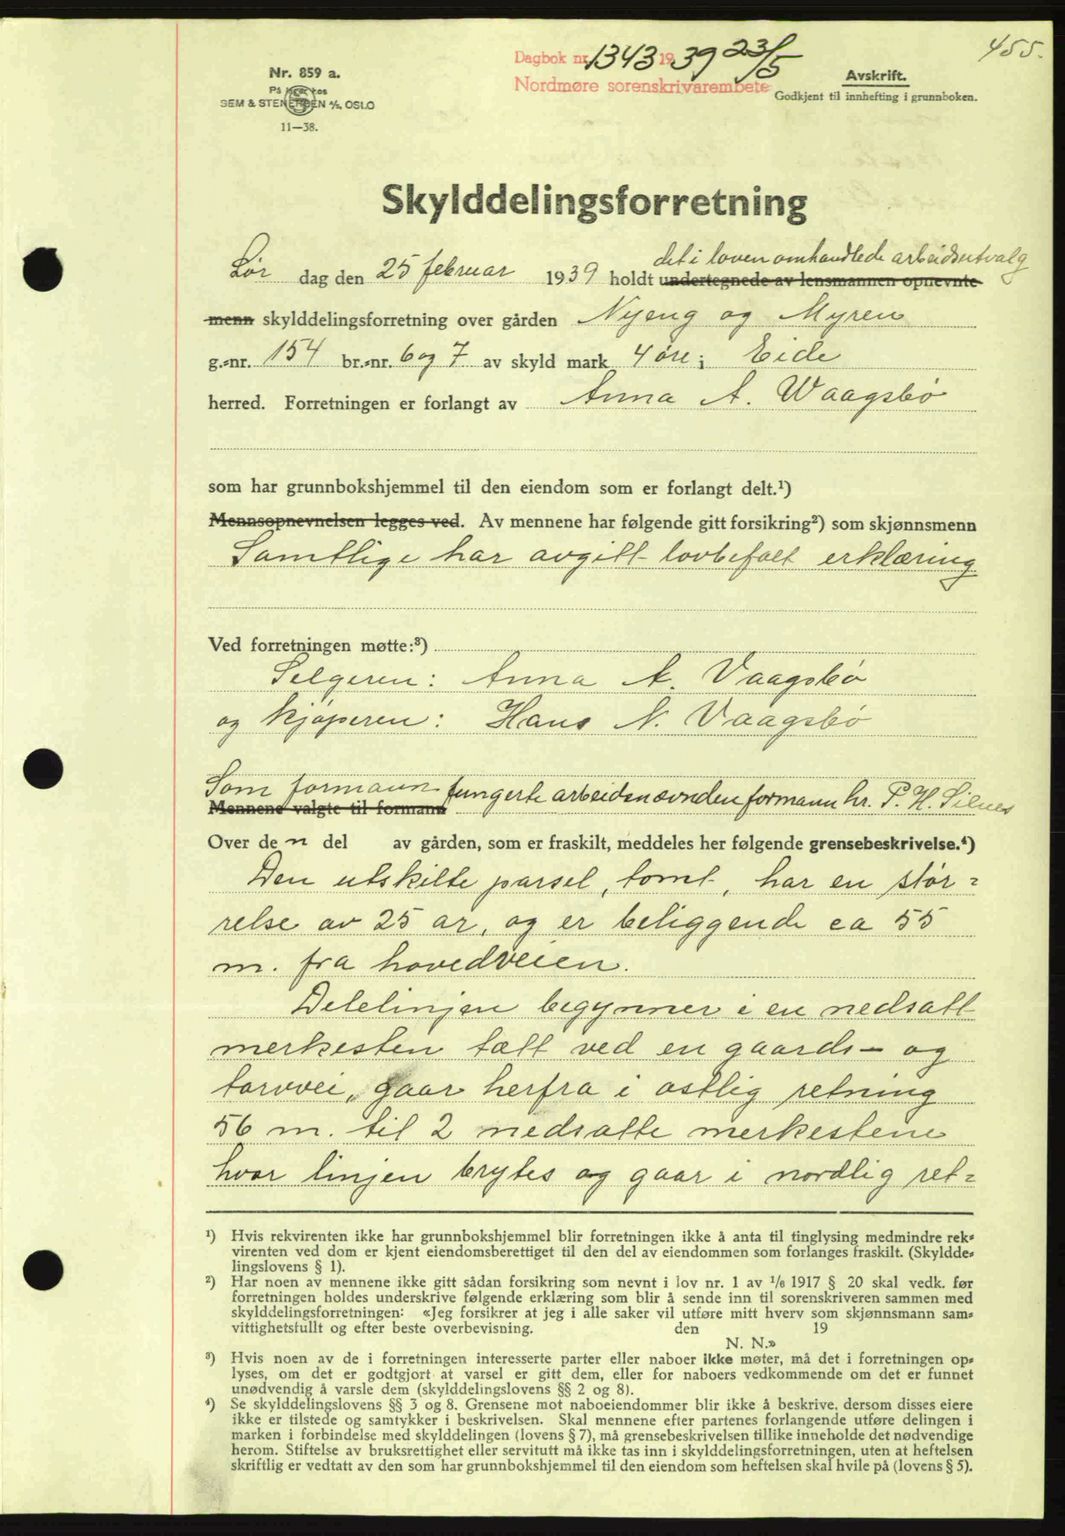 455.
Dagbok nr. 1343 1939 23/5
Nordmøre sorenskrivarembete
Nr. 859 a.
SEM & STENERSEN A/S, OSLO
11—38.
Avskrift.
Godkjent til innhefting i grunnboken.
Skylddelingsforretning
det i loven omhandlede arbeidsutvalg
Lør dag den 25 februar 1939 holdt undertegnede av lensmannen opnevnte
menn skylddelingsforretning over gården Nyeng og Myren
g.-nr. 154 br.-nr. 6 og 7 av skyld mark 4 øre i Eide
herred. Forretningen er forlangt av Anna A. Waagsbø
som har grunnbokshjemmel til den eiendom som er forlangt delt.¹)
Mennsopnevnelsen legges ved. Av mennene har følgende gitt forsikring²) som skjønnsmenn
Samtlige har avgitt lovbefalt erklæring
Ved forretningen møtte:³)
Selgeren: Anna A. Vaagsbø
og kjøperen: Hans N. Vaagsbø
Som formann fungerte arbeidsnevnden formann hr. P. H. Silnes
Mennene valgte til formann
Over den del av gården, som er fraskilt, meddeles her følgende grensebeskrivelse.⁴)
Den utskilte parsel, tomt, har en stør=
relse av 25 ar, og er beliggende ca 55
m. fra hovedveien.
Delelinjen begynner i en nedsatt
merkesten tætt ved en gaards- og
torvvei, gaar herfra i østlig retning
56 m. til 2 nedsatte merkestene
hvor linjen brytes og gaar i nordlig ret=
¹) Hvis rekvirenten ikke har grunnbokshjemmel blir forretningen ikke å anta til tinglysing medmindre rek=
virenten ved dom er kjent eiendomsberettiget til den del av eiendommen som forlanges fraskilt. (Skyldde=
lingslovens § 1).
²) Har noen av mennene ikke gitt sådan forsikring som nevnt i lov nr. 1 av 1/6 1917 § 20 skal vedk. før
forretningen holdes underskrive følgende erklæring som blir å sende inn til sorenskriveren sammen med
skylddelingsforretningen: «Jeg forsikrer at jeg i alle saker vil utføre mitt hverv som skjønnsmann sam=
vittighetsfullt og efter beste overbevisning. den 19
N. N.»
³) Hvis noen av de i forretningen interesserte parter eller naboer ikke møter, må det i forretningen op=
lyses, om det er godtgjort at varsel er gitt dem, eller for naboers vedkommende om det er funnet
unødvendig å varsle dem (skylddelingslovens §§ 2 og 8).
⁴) Se skylddelingslovens §§ 3 og 8. Grensene mot naboeiendommer blir ikke å beskrive, dersom disses eiere
ikke er tilstede og samtykker i beskrivelsen. Skal mennene efter partenes forlangende utføre delingen i
marken i forbindelse med skylddelingen (lovens § 7), må grensebeskrivelsen tillike inneholde det nødvendige
herom. Stiftelse av bruksrettighet eller servitutt må ikke tas inn i skylddelingsforretningen, uten at heftelsen
skriftlig er vedtatt av den som har grunnbokshjemmel til den eiendom som heftelsen skal hvile på (lovens § 5).